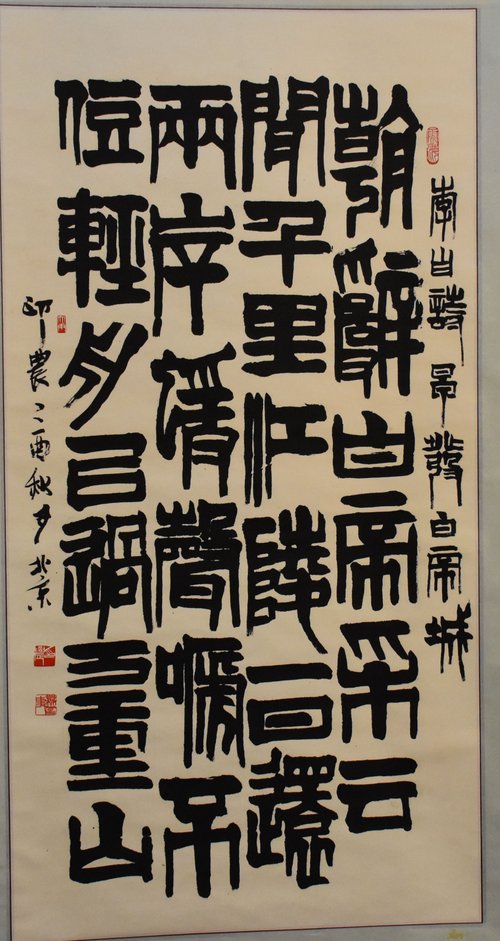 李白詩 早發白帝城
朝辭白帝采云
閒千里江陵一日還
兩岸猿聲啼不
住輕舟已過万重山
農乙酉秋于北京